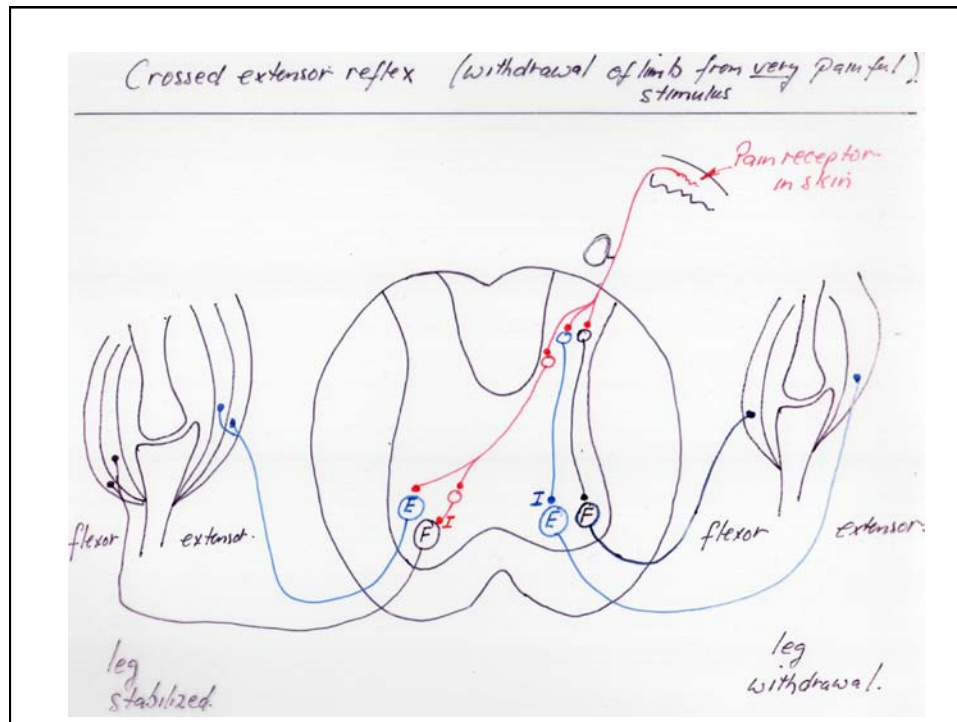 Crossed extensor reflex (withdrawal of limb from very painful)
stimulus
Pain receptor
in skin
E
I
F
I
E
F
flexor
extensor.
flexor
extensor.
leg
stabilized.
leg
withdrawal.